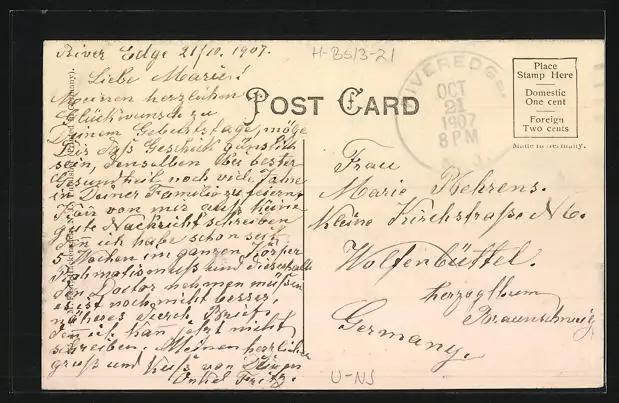 River Edge 21/10. 1907.
H-BS13-21
Liebe Marie!
Meinen herzlichen
Glückwunsch zu
Deinem Geburtstage, möge
Dir das Geschick günstig
sein, denselben bei bester
Gesundheit noch viele Jahre
in Deiner Familie zu feiern,
von mir auch keine
gute Nachricht schreiben
den ich habe schon seit
5 Wochen im ganzen Körper
und
den Doctor nehmen müssen
es ist noch nicht besser,
näheres durch Brief,
den ich kan jetzt nicht
schreiben. Meinen herzlichen
gruß und Kuß von Deinen
Onkel Fritz.
POST CARD
RIVEREDGE
OCT
21
1907
8 PM
N.J.
Place
Stamp Here
Domestic
One cent
Foreign
Two cents
Made in Germany.
Frau
Marie Behrens.
kleine Kirchstraße No 6.
Wolfenbüttel.
Herzogthum
Braunschweig
Germany.
U-NS